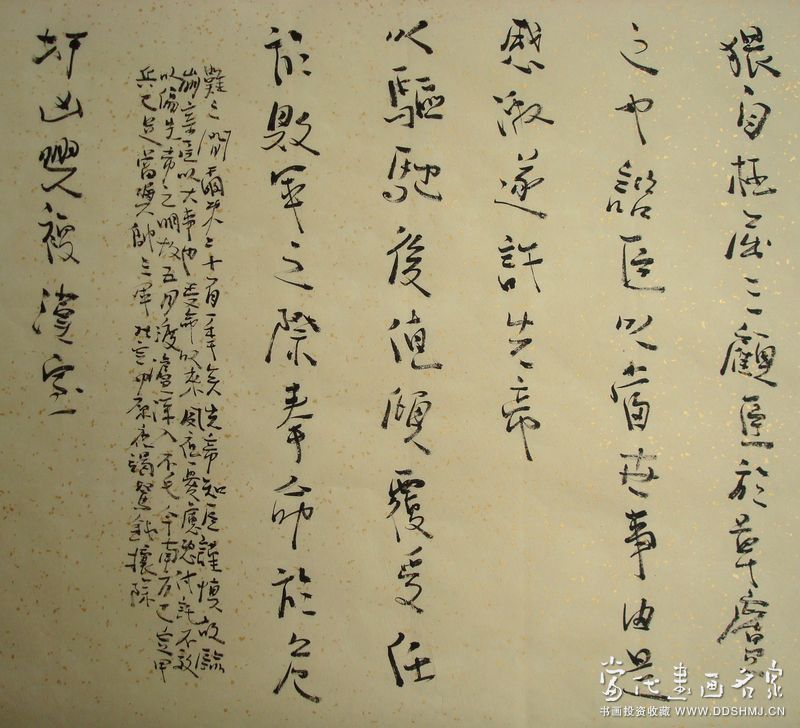 猥自枉屈三顧臣於草廬
之中諮臣以當世事由是
感激遂許先帝
以驅馳後值傾覆受任
於敗軍之際奉命於危
難之間爾來二十有一年矣先帝知臣謹慎故臨
崩寄臣以大事也受命以來夙夜憂慮恐付託不效
以傷先帝之明故五月渡瀘深入不毛今南方已定甲
兵已足當獎帥三軍北定中原庶竭駑鈍攘除
奸凶興複漢室
當代書畫名家
书画投资收藏 WWW.DDSHMJ.CN